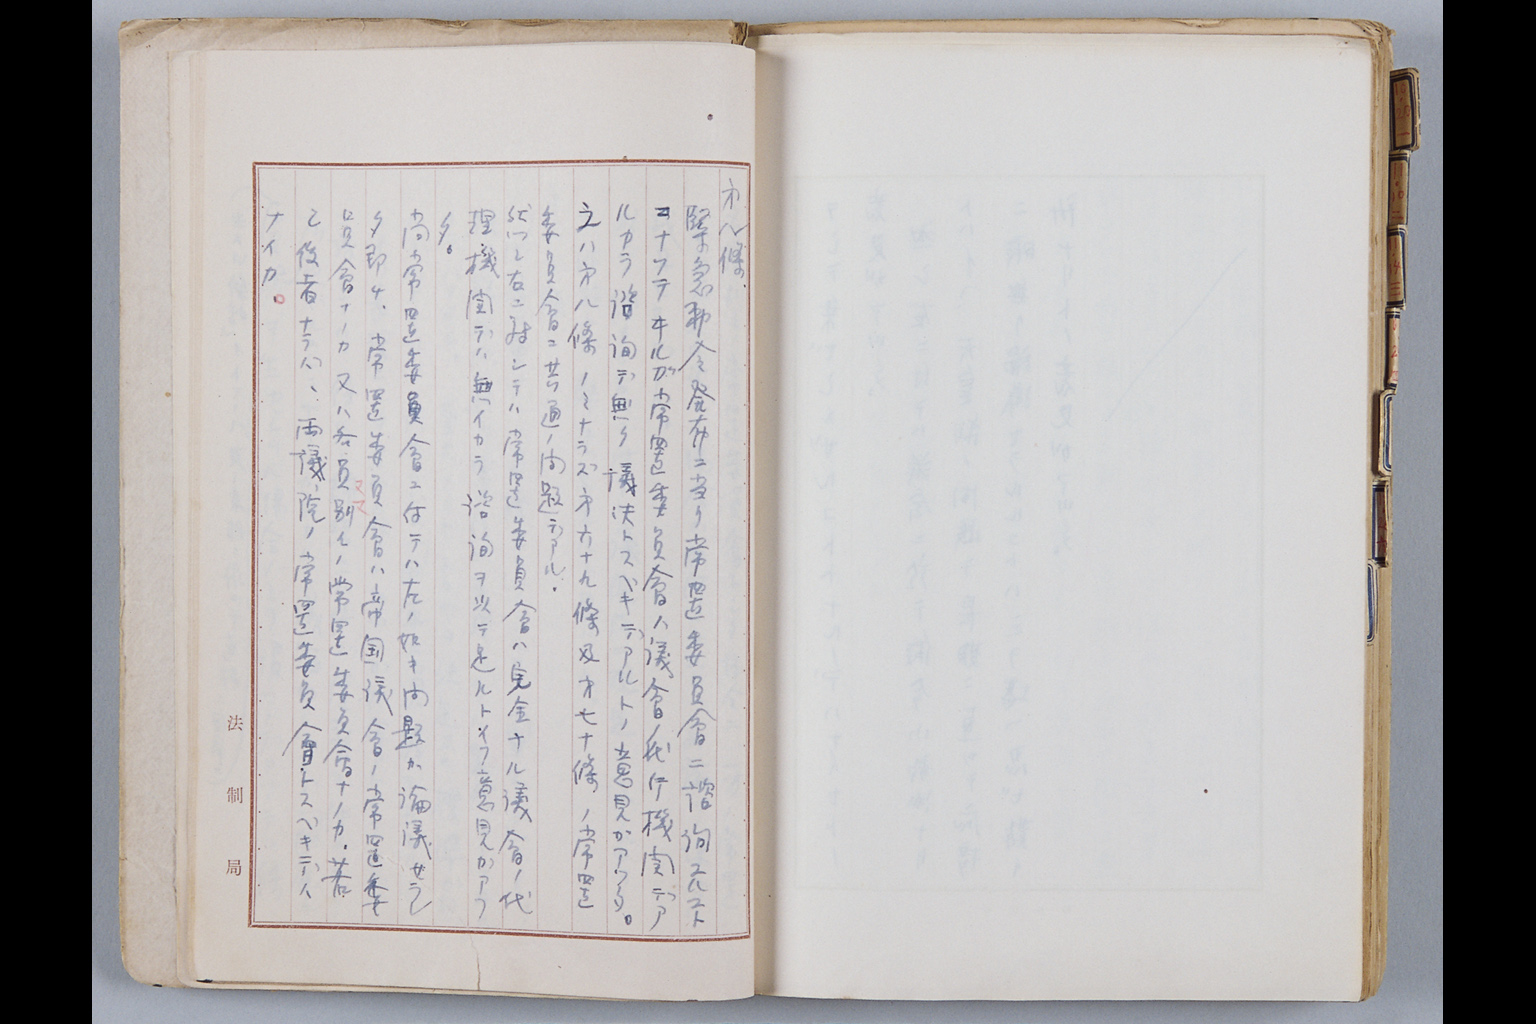 才八條、
緊急勅令発布ニ当リ常置委員會ニ諮詢スルコト
ニナツテヰルガ常置委員會ハ議會ノ代行機関デア
ルカラ諮詢デ無ク議決トスベキデアルトノ意見ガアツタ。
之ハ才八條ノミナラズ才六十九條及才七十條ノ常置
委員會ニ共通ノ問題デアル。
然シ右ニ対シテハ常置委員會ハ完全ナル議會ノ代
理機関デハ無イカラ諮詢ヲ以テ足ルトイフ意見ガアツ
タ。
尚常置委員會ニ付テハ左ノ如キ問題ガ論議セラレ
タ即チ、常置委員會ハ帝国議會ノ常置委
員會ナノカ又ハ各員別々ノ常置委員會ナノカ。若
シ後者ナラバ、両議院ノ常置委員會トスベキデハ
ナイカ。
法制局